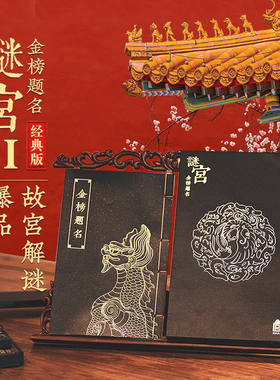 金榜题名
谜宫I
经典版
故宫解谜
爆品
金榜题名
謎宮
金榜题名